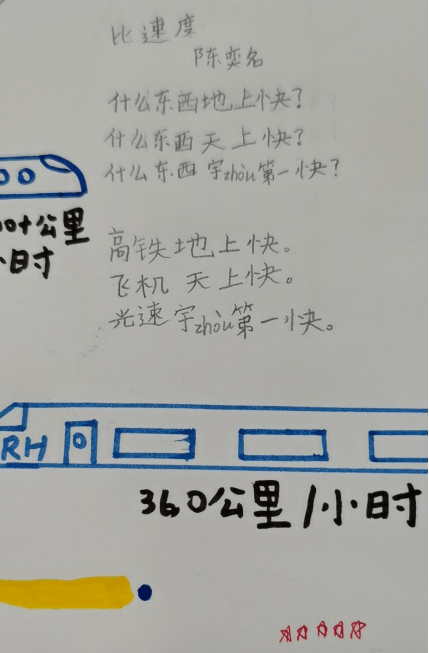 比速度
陈奕名
什么东西地上快？
什么东西天上快？
什么东西宇zhòu第一快？
高铁地上快。
飞机天上快。
光速宇zhòu第一快。
00+公里
小时
RH
360公里/小时